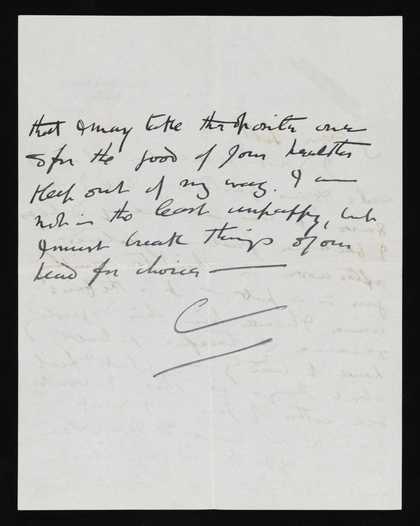 that I may take the opposite one
& for the good of your health
Keep out of my way. I am
not in the least unhappy, but
I must break things of our
head for choice
C